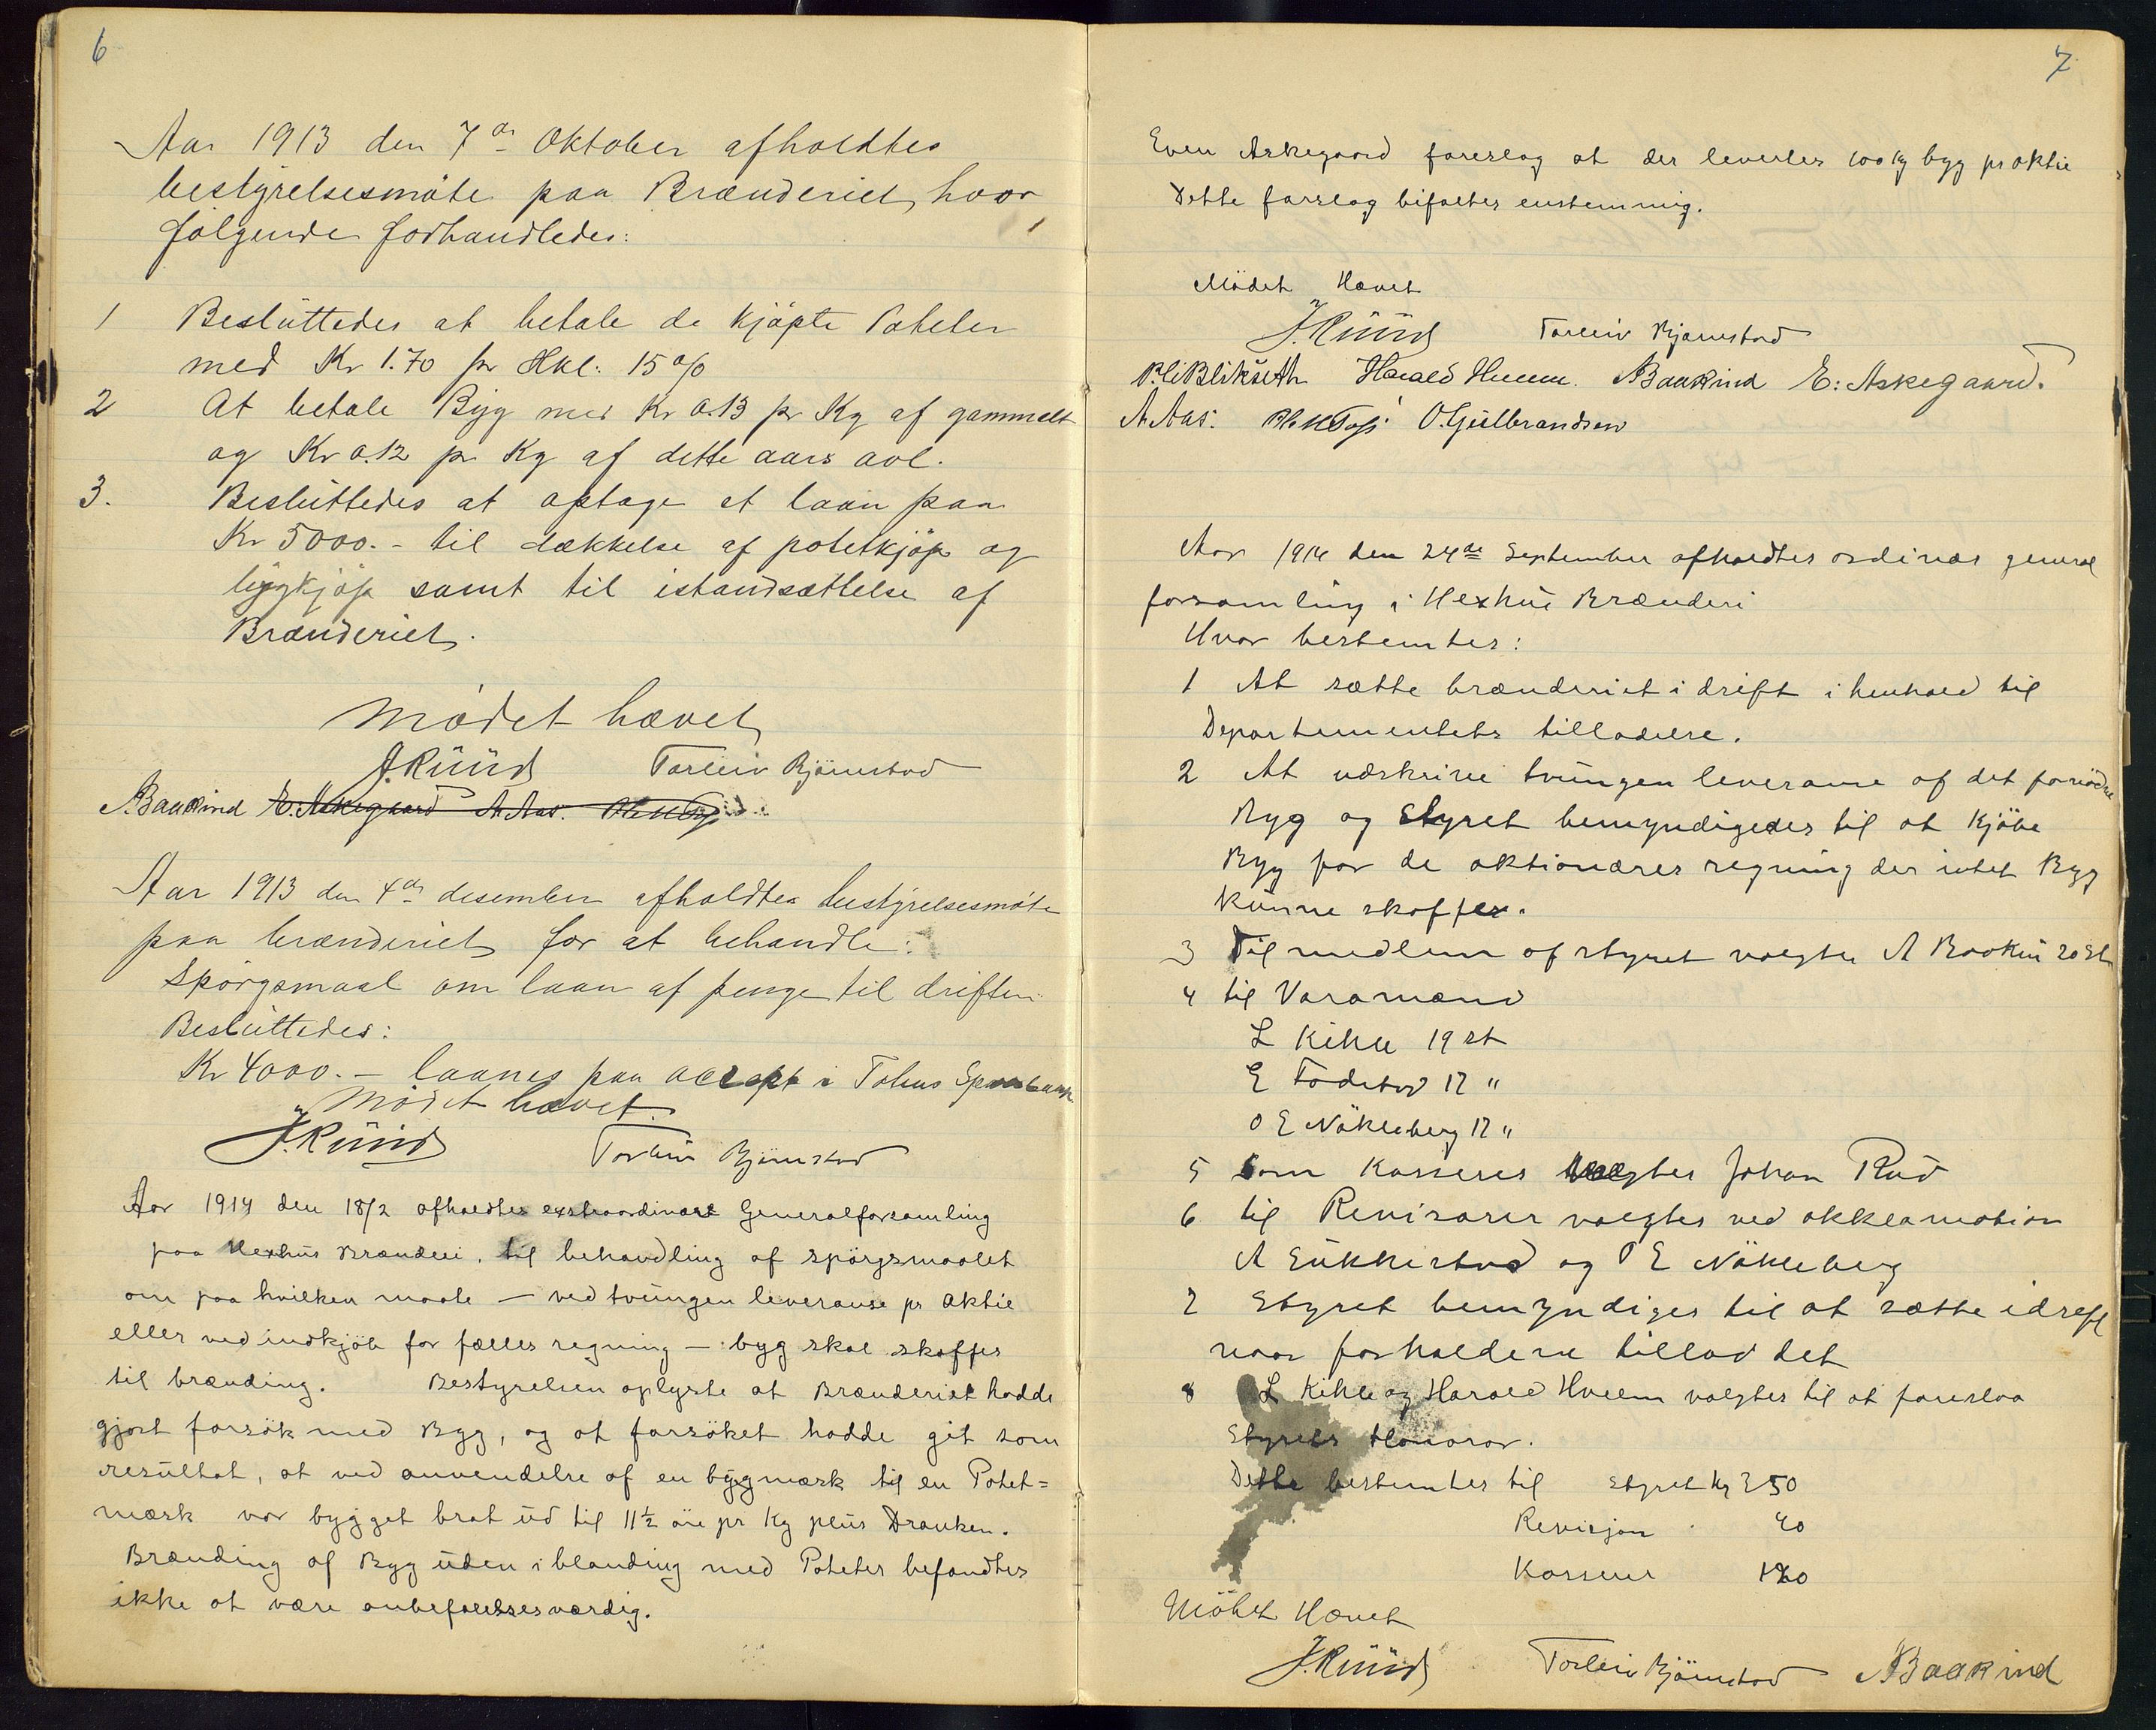 6
Aar 1913 den 7de Oktober afholdtes
bestyrelsesmöte paa Brænderiet, hvor
følgende forhandledes:
1 Besluttedes at betale de kjöpte Poteter
med Kr 1.70 pr Hkl: 15 %
2 At betale Byg med Kr 0.13 pr Kg af gammelt
og Kr 0.12 pr Kg af dette aars avl.
3. Besluttedes at optage et laan paa
Kr 5000.- til dækkelse af potetkjöp og
bygkjöp samt til istandsættelse af
Brænderiet.
Mødet hævet
J. Ruud Torleiv Bjørnstad
A Baakind E. Askegaard A Aas.
Aar 1913 den 4de desember afholdtes bestyrelsesmöte
paa brænderiet for at behandle:
Spörgsmaal om laan af penge til driften
Besluttedes:
Kr 4000.- laanes paa accept i Sparebank
Mødet hævet.
J. Ruud Torleiv Bjørnstad
Aar 1914 den 18/2 afholdtes exstraordinært Generalforsamling
paa Hexhus Brænderi, til behandling af spörgsmaalet
om paa hvilken maate — ved tvungen leveranse pr Aktie
eller ved indkjöb for fælles regning — byg skal skaffes
til brænding. Bestyrelsen oplyste at Brænderiet hadde
gjort forsök med Byg, og at forsöket hadde git som
resultat, at ved anvendelse af en bygmæsk til en Potet=
mæsk var bygget brat ud til 11½ öre pr Kg plus Dranken.
Brænding af Byg uden iblanding med Poteter befandtes
ikke at være anbefalelsesværdig.
7
Even Askegaard foreslog at der leverles 100 Kg byg pr aktie
Dette forslag bifaltes enstemmig.
Mödet Hævet
J. Ruud Torleiv Bjørnstad
Blikseth Harald Hveem. A Baakind E: Askegaard.
A Aas. O. Gulbrandsen
Aar 1914 den 24de September afholdtes ordinær general
forsamling i Hexhus Brænderi
Hvor bestemtes:
1 At sætte brænderiet i drift i henhold til
Departementets tilladelse.
2 At udskrive tvungen leveranse af det fornödne
Byg og Styret bemyndigedes til at kjöbe
Byg for de aktionærers regning der intet Byg
kunne skaffe.
3 Til medlem af styret valgtes A Baakin 20 St
4 til Varamænd
L Kihle 19 st
E 17 "
O E Nökleberg 17 "
5 Som Kasserer valgtes Johan Rud
6 til Revisorer valgtes ved akklamation
A Sukkestad og O E Nökleberg
7 Styret bemyndiges til at sætte idrift
naar forholdene tillod det
8 L Kihle og Harald Hveem valgtes til at foreslaa
Styrets Honorar.
Dette bestemtes til styret kr 350
Revisjon 40
Kasserer
Mödet Hævet
J. Ruud Torleiv Bjørnstad A Baakind